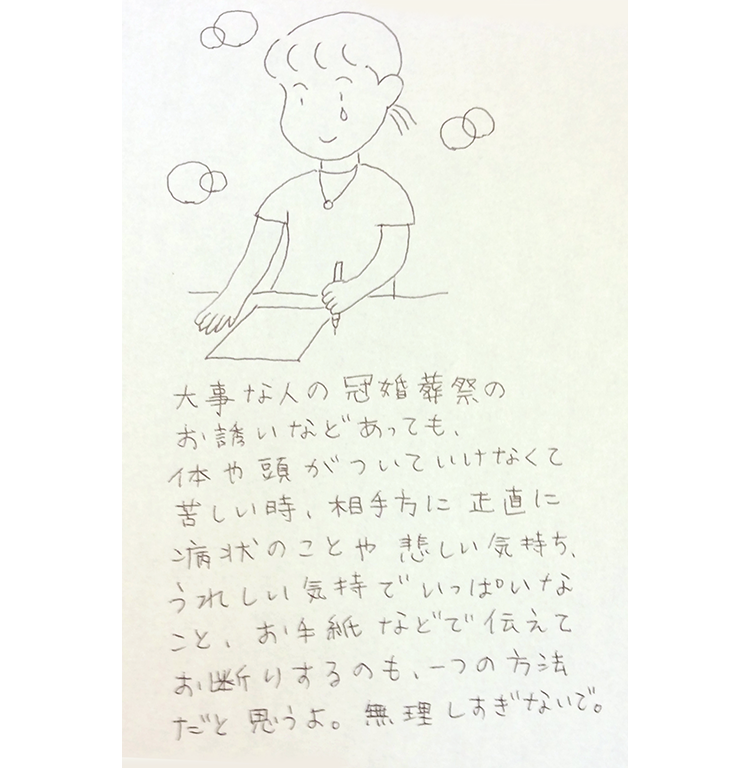 大事な人の冠婚葬祭の
お誘いなどあっても、
体や頭がついていけなくて
苦しい時、相手方に正直に
病状のことや悲しい気持ち、
うれしい気持でいっぱいな
こと、お手紙などで伝えて
お断りするのも、一つの方法
だと思うよ。無理しすぎないで。